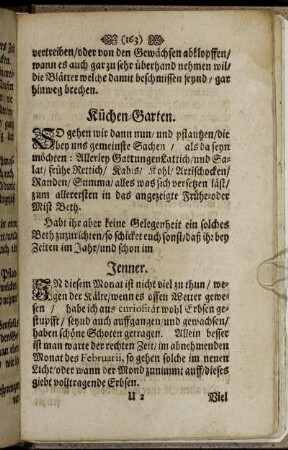 (163)
vertreiben/oder von den Gewächsen abklopffen/
wann es auch gar zu sehr überhand nehmen wil/
die Blätter welche damit beschmissen seynd/gar
hinweg brechen.
Küchen-Garten.
SO gehen wir dann nun/und pflantzen/die
bey uns gemeinste Sachen/ als da seyn
möchten: Allerley Gattungen Lattich/und Sa-
lat/frühe Rettich/Kabis/Kohl/Artischocken/
Randen/Summa/alles was sich versetzen läst/
zum allerersten in das angezeigte Frühe-oder
Mist Beth.
Habt ihr aber keine Gelegenheit ein solches
Beth zuzurichten/so schicket euch sonst/daß ihr bey
Zeiten im Jahr/und schon im
Jenner.
IN diesem Monat ist nicht viel zu thun/we-
gen der Kälte/wenn es offen Wetter gewe-
sen/habe ich aus curiosität wohl Erbsen ge-
stupfft/seynd auch auffgangen/und gewachsen/
haben schöne Schoten getragen. Allein besser
ist man warte der rechten Zeit/im abnehmenden
Monat des Februarii, so gehen solche im neuen
Licht/oder wann der Mond zunimmt auff/dieses
giebt volltragende Erbsen.
U 2 Viel